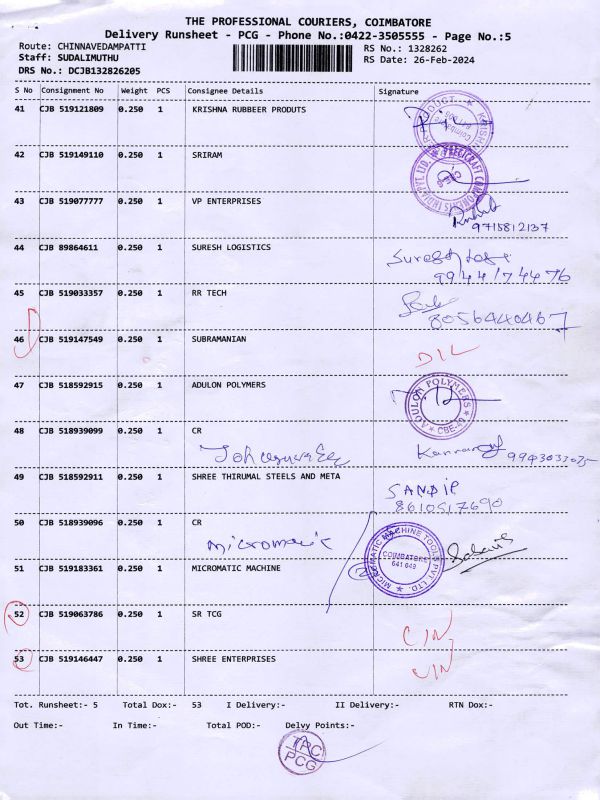 THE PROFESSIONAL COURIERS, COIMBATORE
Delivery Runsheet - PCG - Phone No.:0422-3505555 - Page No.:5
Route: CHINNAVEDAMPATTI RS No.: 1328262
Staff: SUDALIMUTHU RS Date: 26-Feb-2024
DRS No.: DCJB132826205
S No Consignment No Weight PCS Consignee Details Signature
41 CJB 519121809 0.250 1 KRISHNA RUBBEER PRODUTS
42 CJB 519149110 0.250 1 SRIRAM
43 CJB 519077777 0.250 1 VP ENTERPRISES
9715812137
44 CJB 89864611 0.250 1 SURESH LOGISTICS
9944174476
45 CJB 519033357 0.250 1 RR TECH
8056440467
46 CJB 519147549 0.250 1 SUBRAMANIAN
D/L
47 CJB 518592915 0.250 1 ADULON POLYMERS
ADULON POLYMERS
CBE-49
48 CJB 518939099 0.250 1 CR
49 CJB 518592911 0.250 1 SHREE THIRUMAL STEELS AND META
SANDIP
8610517690
50 CJB 518939096 0.250 1 CR
Micromatic
MICROMATIC MACHINE TOOLS PVT LTD.
COIMBATORE
641 049
51 CJB 519183361 0.250 1 MICROMATIC MACHINE
52 CJB 519063786 0.250 1 SR TCG
C/N
53 CJB 519146447 0.250 1 SHREE ENTERPRISES
Tot. Runsheet:- 5 Total Dox:- 53 I Delivery:- II Delivery:- RTN Dox:-
Out Time:- In Time:- Total POD:- Delvy Points:-
TPC
PCG